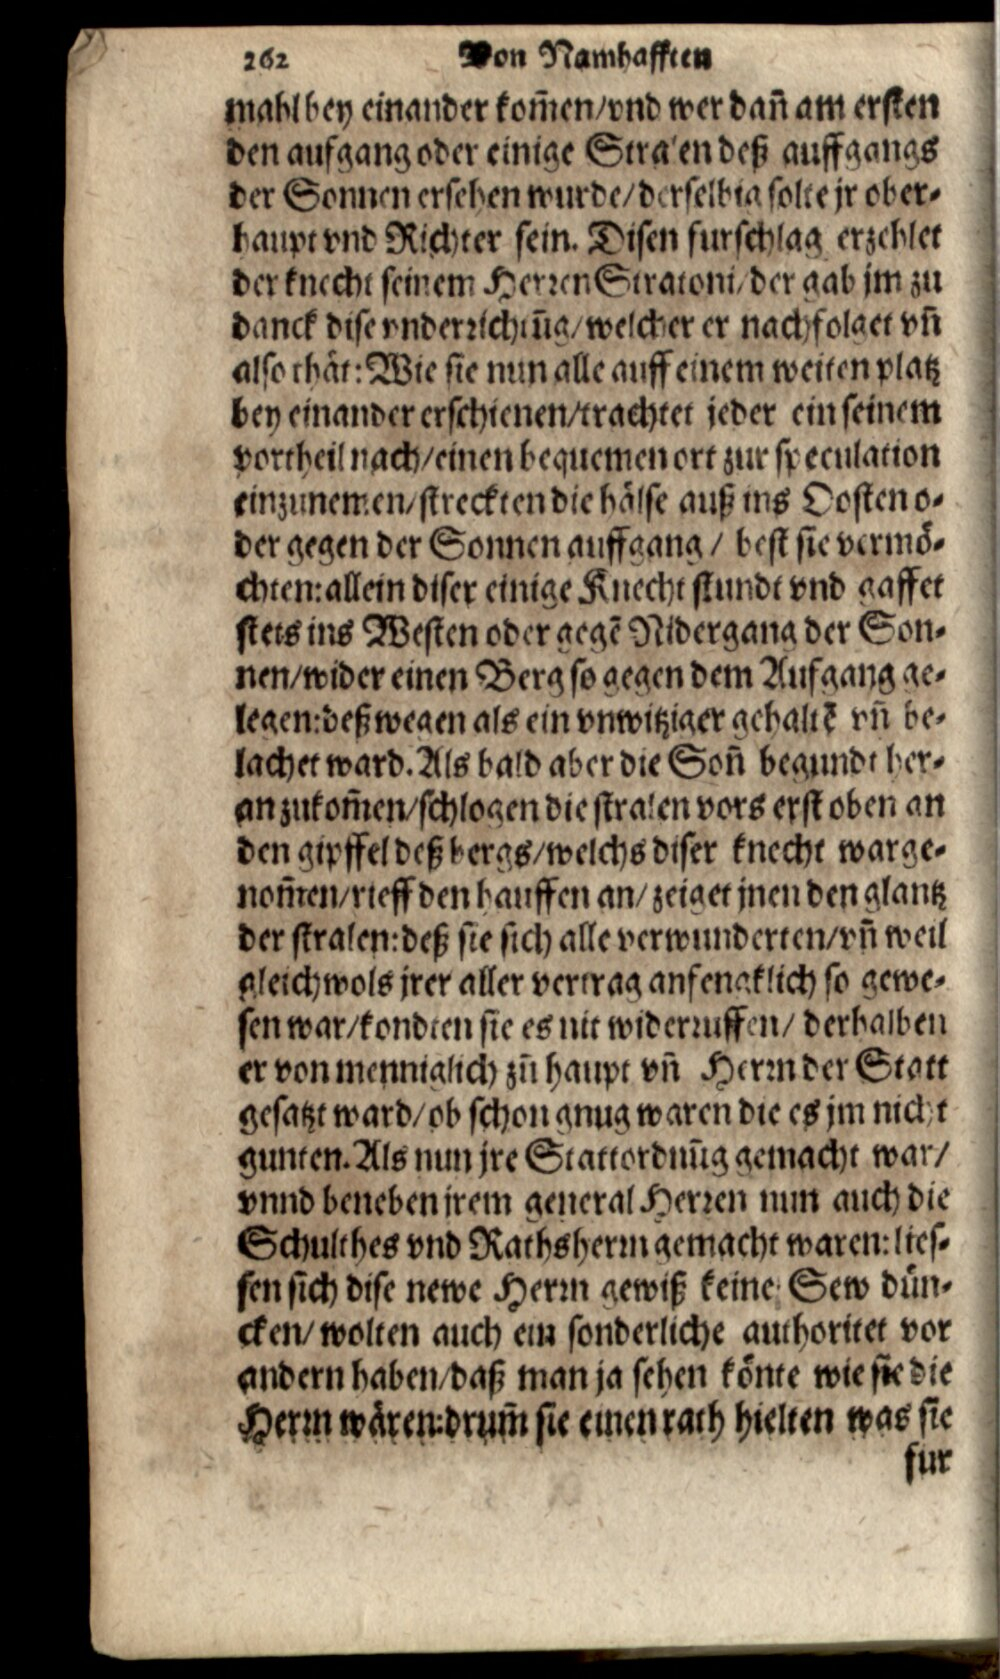 262 Von Namhafften
mahl bey einander kom̃en/vnd wer dañ am ersten
den aufgang oder einige Stralen deß auffgangs
der Sonnen ersehen wurde/derselbig solte jr ober-
haupt vnd Richter sein. Disen furschlag erzehlet
der knecht seinem Herren Stratoni/der gab jm zu
danck dise vnderrichtũg/welcher er nachfolget vñ
also thät: Wie sie nun alle auff einem weiten platz
bey einander erschienen/trachtet jeder ein seinem
vortheil nach/einen bequemen ort zur speculation
einzunemen/streckten die hälse auß ins Oosten o-
der gegen der Sonnen auffgang / best sie vermö-
chten: allein diser einige Knecht stundt vnd gaffet
stets ins Westen oder gegẽ Nidergang der Son-
nen/wider einen Berg so gegen dem Aufgang ge-
legen: deßwegen als ein vnwitziger gehaltẽ vñ be-
lachet ward. Als bald aber die Soñ begundt her-
an zukom̃en/schlogen die stralen vors erst oben an
den gipffel deß bergs/welchs diser knecht warge-
nom̃en/rieff den hauffen an/zeiget jnen den glantz
der stralen: deß sie sich alle verwunderten/vñ weil
gleichwols jrer aller vertrag anfengklich so gewe-
sen war/kondten sie es nit widerruffen/ derhalben
er von menniglich zũ haupt vñ Herrn der Statt
gesatzt ward/ob schon gnug waren die es jm nicht
gunten. Als nun jre Stattordnũg gemacht war/
vnnd beneben jrem general Herren nun auch die
Schulthes vnd Rathsherrn gemacht waren: lies-
sen sich dise newe Herrn gewiß keine Sew dün-
cken/wolten auch ein sonderliche authoritet vor
andern haben/daß man ja sehen könte wie sie die
Herrn wären: drum̃ sie einen rath hielten was sie
fur